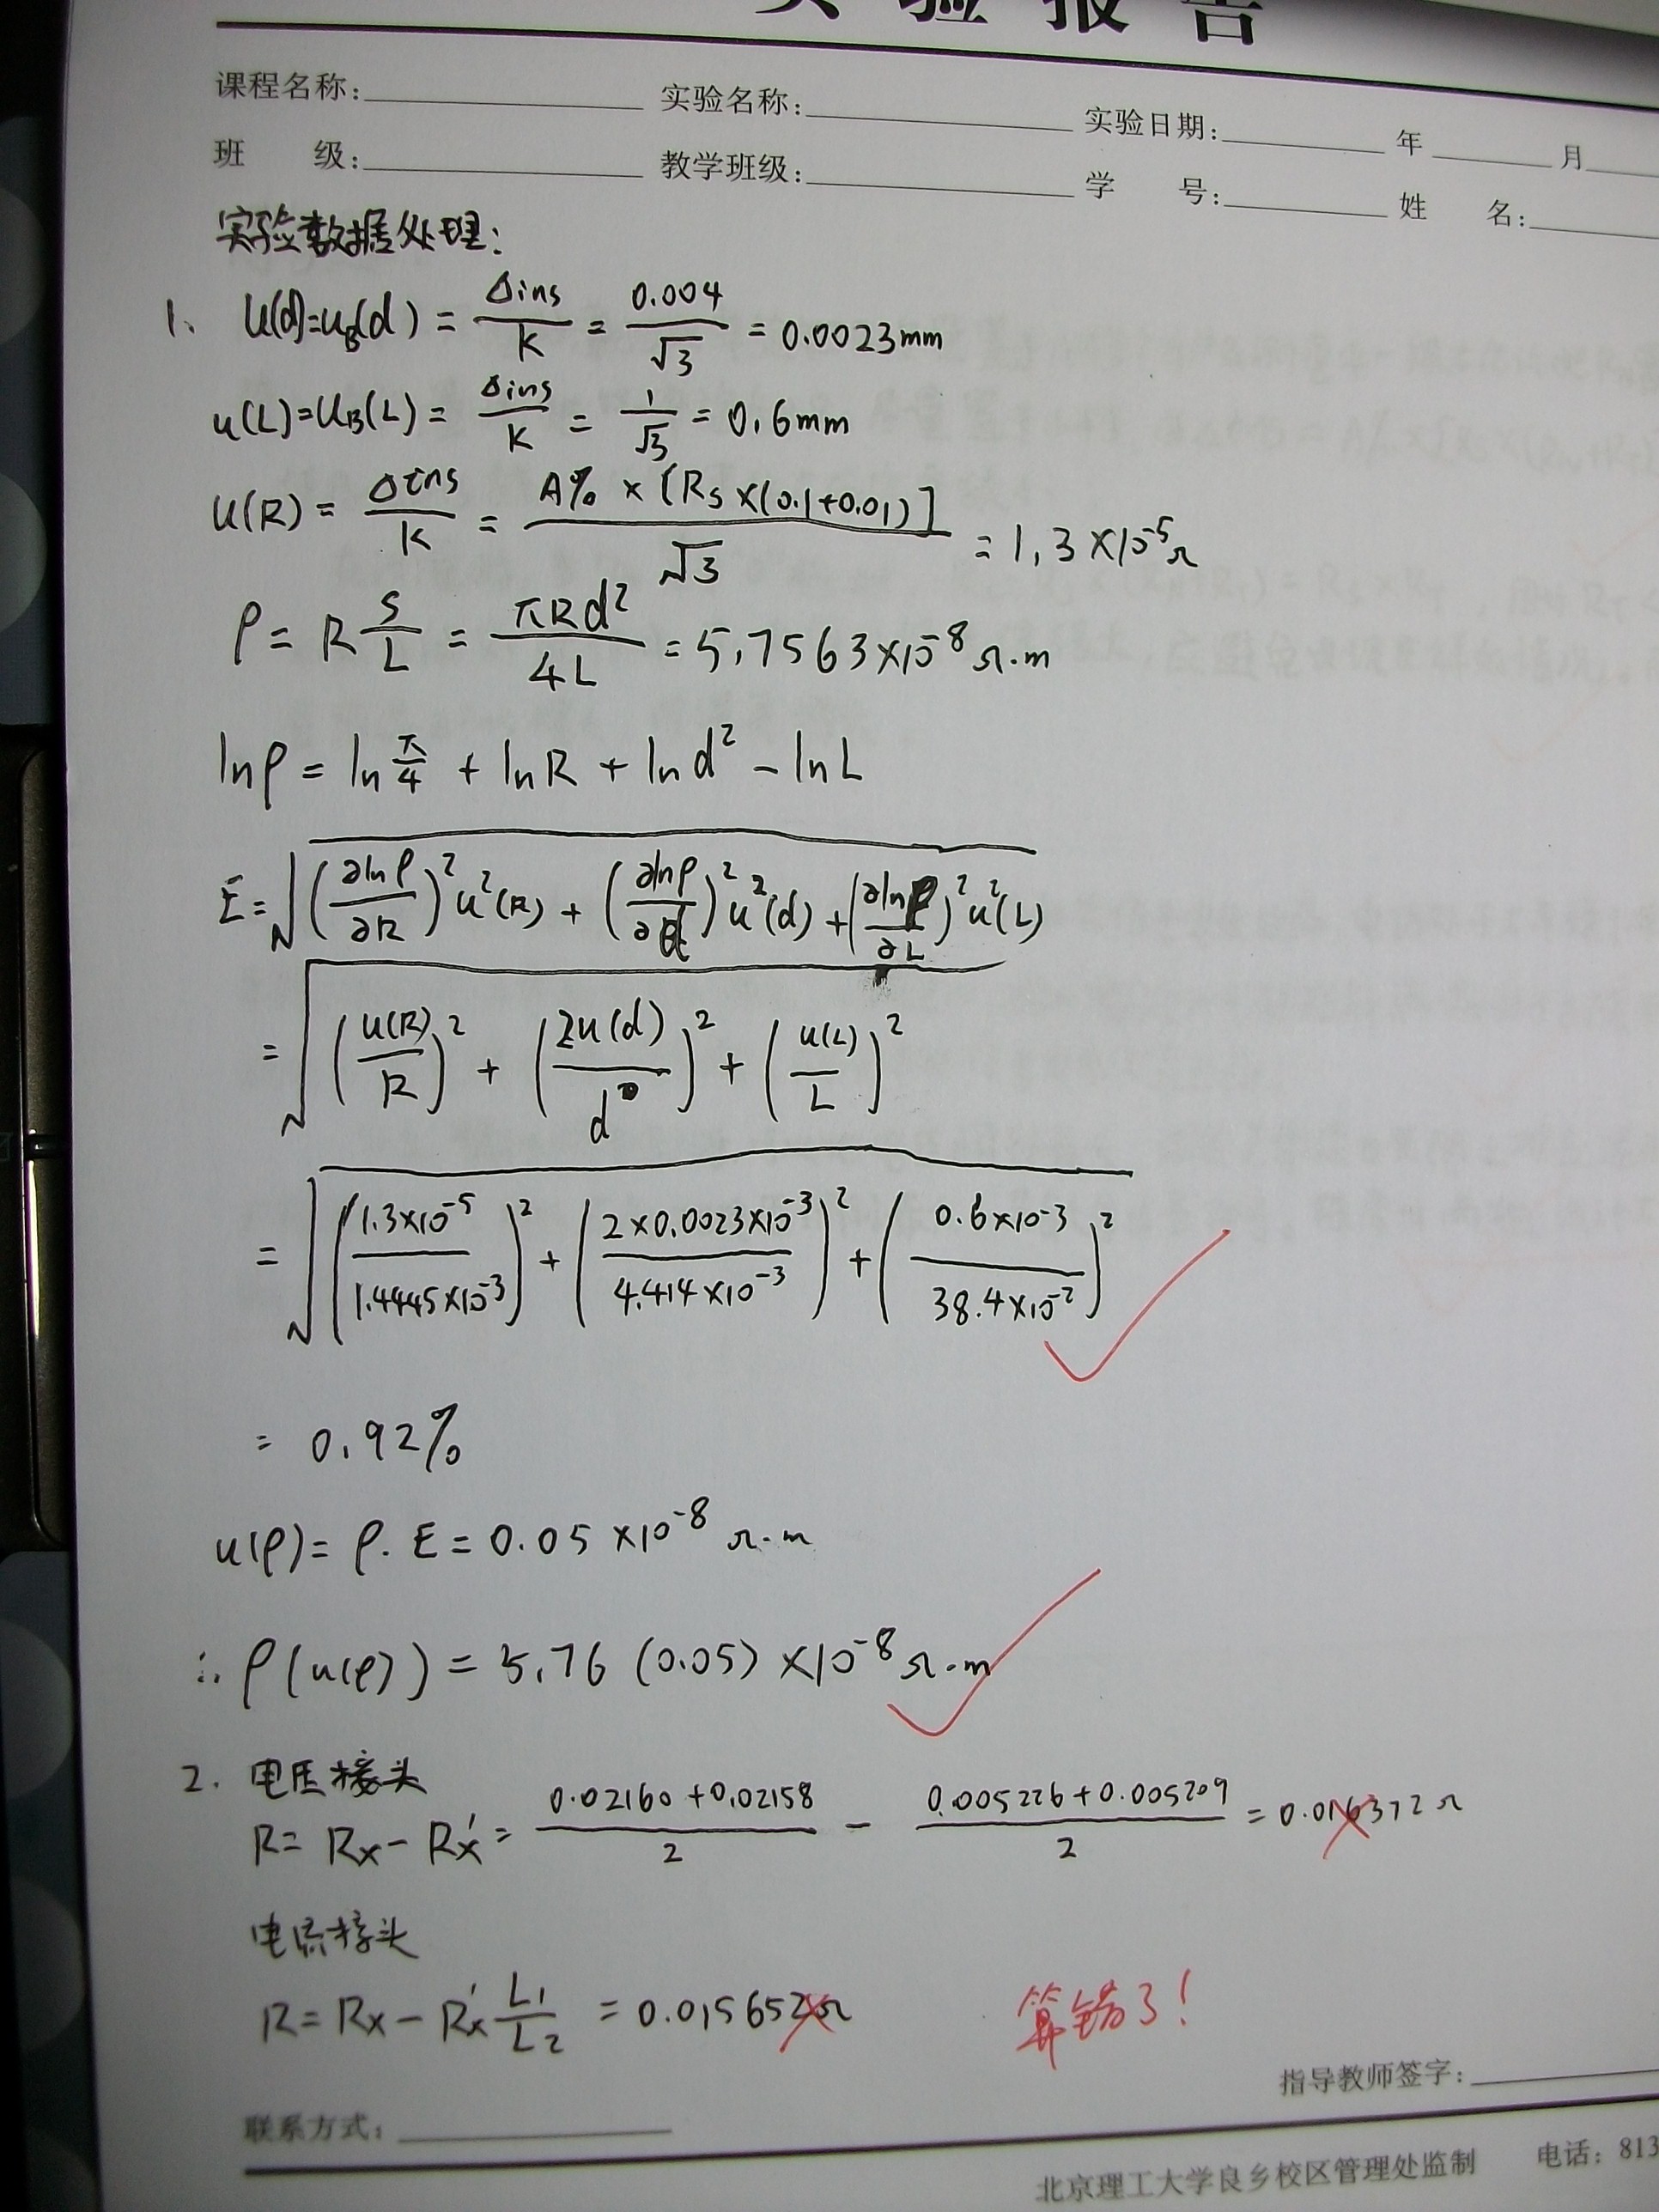 实验报告
课程名称: 实验名称: 实验日期: 年 月
班 级: 教学班级: 学 号: 姓 名:
实验数据处理:
1. u(d)=u_B(d) = Δins/K = 0.004/√3 = 0.0023mm
u(L)=u_B(L) = Δins/K = 1/√3 = 0.6mm
u(R) = Δins/K = A% × [R_S × (0.1+0.01)]/√3 = 1.3×10⁻⁵Ω
ρ = R S/L = πRd²/4L = 5.7563×10⁻⁸Ω·m
lnρ = ln π/4 + lnR + lnd² - lnL
E = √((∂lnρ/∂R)²u²(R) + (∂lnρ/∂d)²u²(d) + (∂lnρ/∂L)²u²(L))
= √((u(R)/R)² + (2u(d)/d)² + (u(L)/L)²)
= √((1.3×10⁻⁵/1.4445×10⁻³)² + (2×0.0023×10⁻³/4.414×10⁻³)² + (0.6×10⁻³/38.4×10⁻²)²)
= 0.92%
u(ρ) = ρ·E = 0.05×10⁻⁸Ω·m
∴ ρ(u(ρ)) = 5.76(0.05)×10⁻⁸Ω·m
2. 电压接头
R = Rx - Rx' = (0.02160+0.02158)/2 - (0.005226+0.005209)/2 = 0.016372Ω
电流接头
R = Rx - Rx' L₁/L₂ = 0.015652Ω
算错了!
指导教师签字:
联系方式:
北京理工大学良乡校区管理处监制 电话: 813